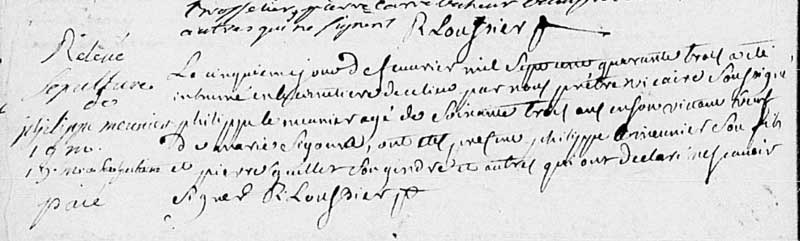 autres qui ne signent R Loussier
Relevé
Sepulture
de
philippe meunier
paié
Le cinquieme jour de feuvrier mil sept cent quarante trois a été
inhumé en le cimetiere de ce lieu par nous prêtre vicaire soussigné,
philippe le meunier agé de soixante trois ans en son vivant veuf
De marie Sigoura, ont été presens philippe Lemeunier son fils
et pierre guillet son gendre et autres qui ont declaré ne scavoir
signer R. Loussier